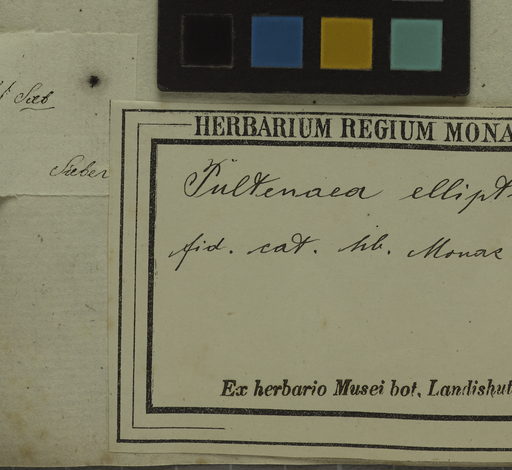 Sieb
Sieber
HERBARIUM REGIUM MONA
Pultenaea ellipt
fid. cat. hb. Monac
Ex herbario Musei bot. Landishut